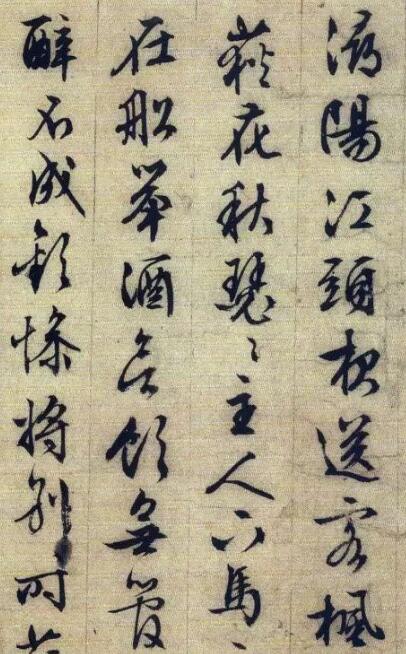 潯陽江頭夜送客楓
荻花秋瑟〻主人下馬
在船舉酒欲飲無管
醉不成歡慘將別時